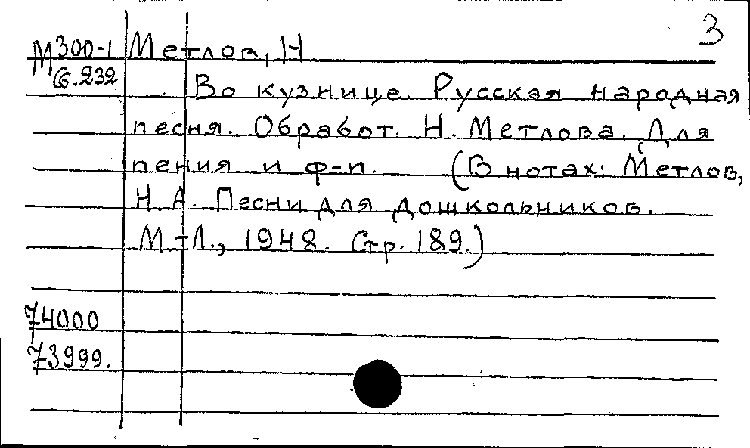 3
М300-1 Метлов, Н
С.232
Во кузнице. Русская народная
песня. Обработ. Н. Метлова. Для
пения и ф-п. (В нотах: Метлов,
Н.А. Песни для дошкольников.
М-Л., 1948. Стр. 189.)
74000
73999.